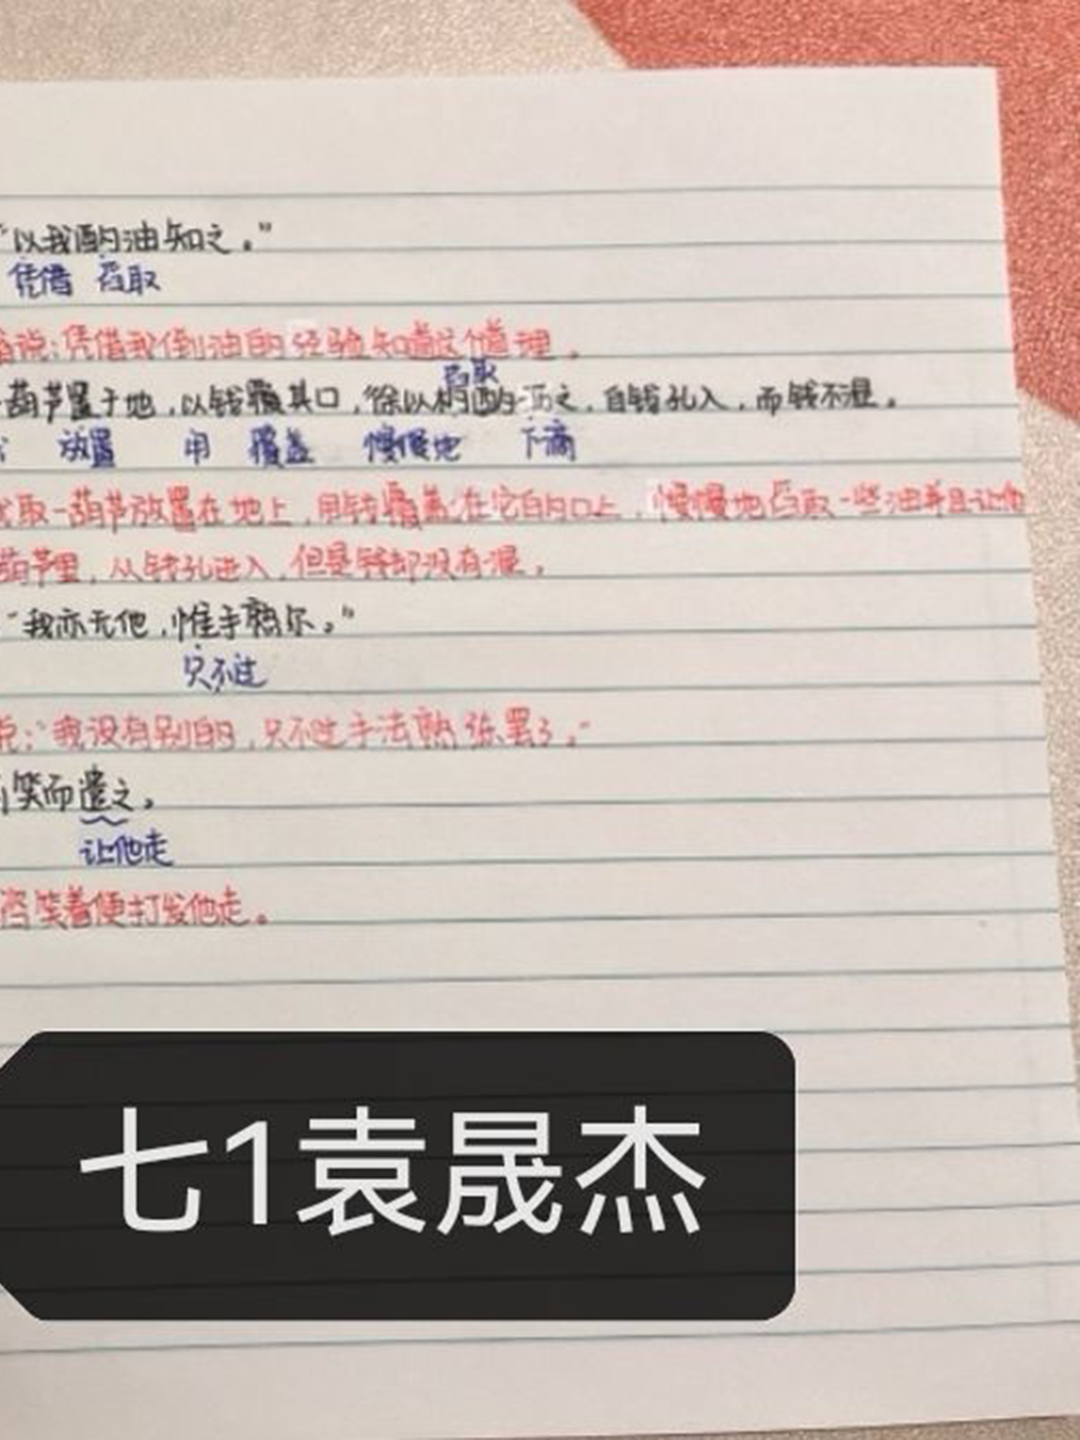 "以我酌油知之。"
凭借 舀取
说:凭借我倒油的经验知道这个道理。
舀取
葫芦置于地,以钱覆其口,徐以杓酌沥之,自钱孔入,而钱不湿。
放置 用 覆盖 慢慢地 下滴
取一葫芦放置在地上,用钱覆盖在它的口上,慢慢地舀取一些油并且让他
葫芦里,从钱孔进入,但是钱却没有湿。
"我亦无他,惟手熟尔。"
只不过
说:"我没有别的,只不过手法熟练罢了。"
笑而遣之。
让他走
咨笑着便打发他走。
七1袁晟杰